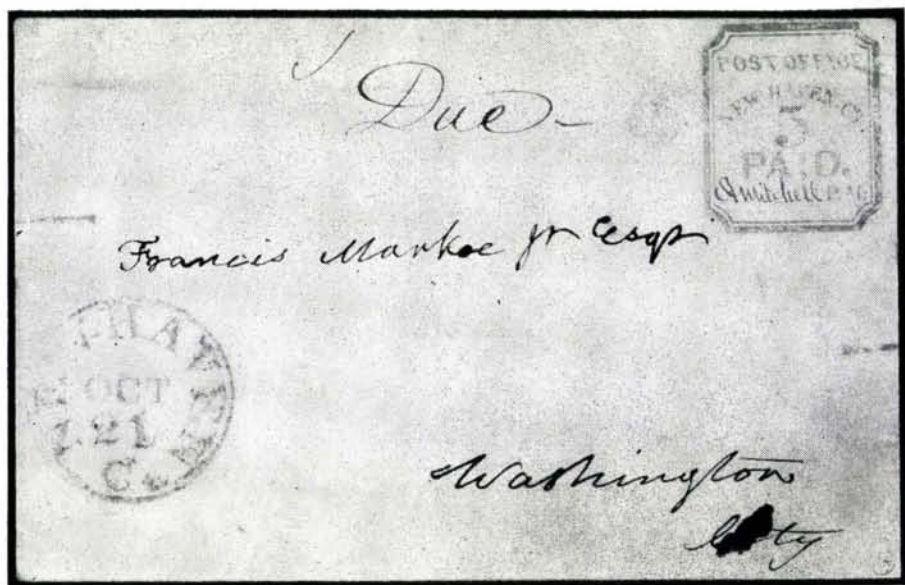 Due -
POST OFFICE
NEW HAVEN, CT.
5
PAID.
E A Mitchell P. M.
Francis Markoe Jr Esqr
OCT
21
Washington
City